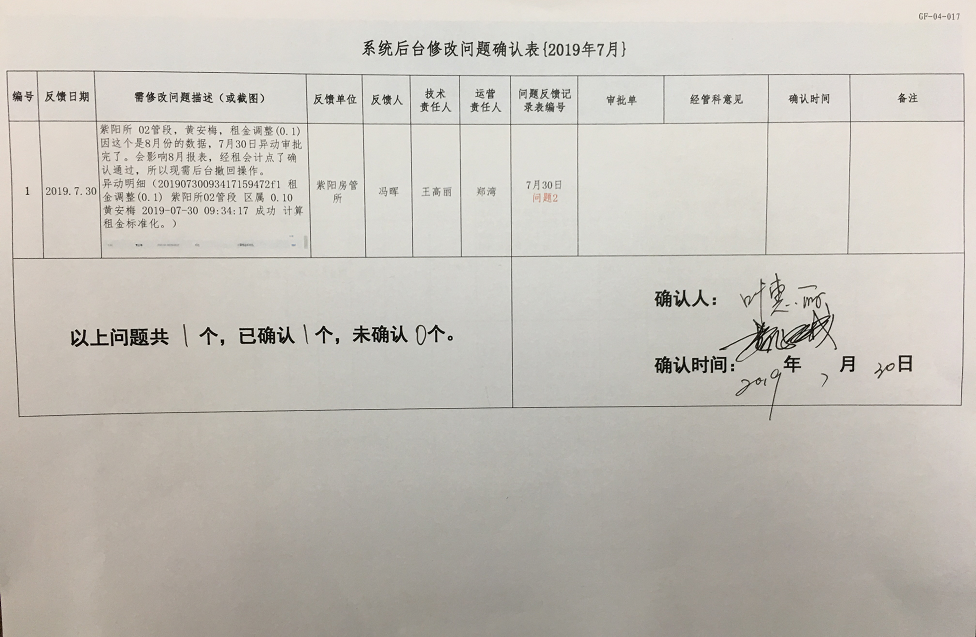 GF-04-017
系统后台修改问题确认表{2019年7月}
编号 反馈日期 需修改问题描述（或截图） 反馈单位 反馈人 技术责任人 运营责任人 问题反馈记录表编号 审批单 经管科意见 确认时间 备注
1
2019.7.30
紫阳所 02管段，黄安梅，租金调整(0.1)
因这个是8月份的数据，7月30日异动审批
完了。会影响8月报表，经租会计点了确
认通过，所以现需后台撤回操作。
异动明细（20190730093417159472f1 租
金调整(0.1) 紫阳所02管段 区属 0.10
黄安梅 2019-07-30 09:34:17 成功 计算
租金标准化。）
紫阳房管
所
冯晖
王高丽
郑湾
7月30日
问题2
以上问题共 1 个，已确认 1 个，未确认 0 个。
确认人：
确认时间：
2019 年 7 月 30 日